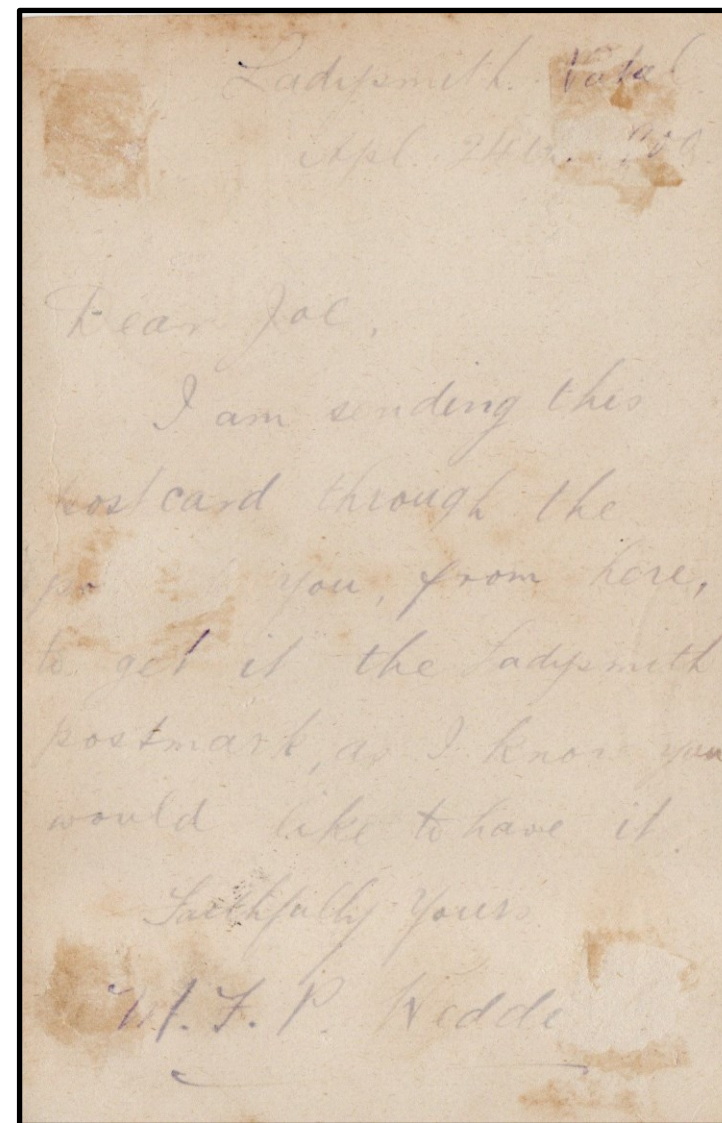 Ladysmith. Natal
Apl. 24th.
Dear Joe,
I am sending this
postcard through the
you, from here,
to get it the Ladysmith
postmark, as I know you
would like to have it.
Faithfully Yours